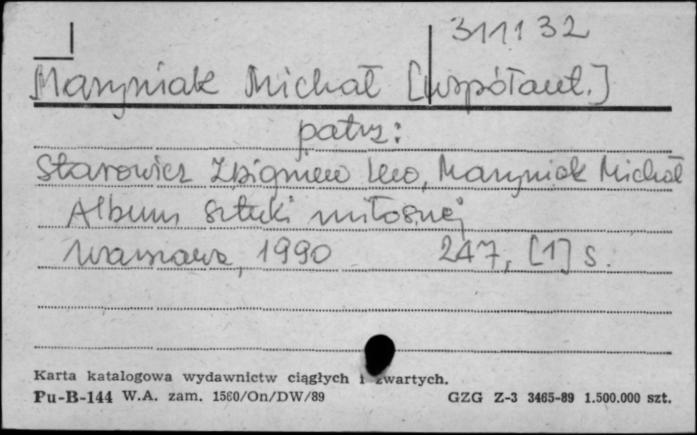 311132
Maryniak Michał [współaut.]
patrz:
Starowicz Zbigniew Lew, Maryniak Michał
Album sztuki miłosnej
Warszawa, 1990 247, [1] s.
Karta katalogowa wydawnictw ciągłych i zwartych.
Pu-B-144 W.A. zam. 1560/On/DW/89 GZG Z-3 3465-89 1.500.000 szt.